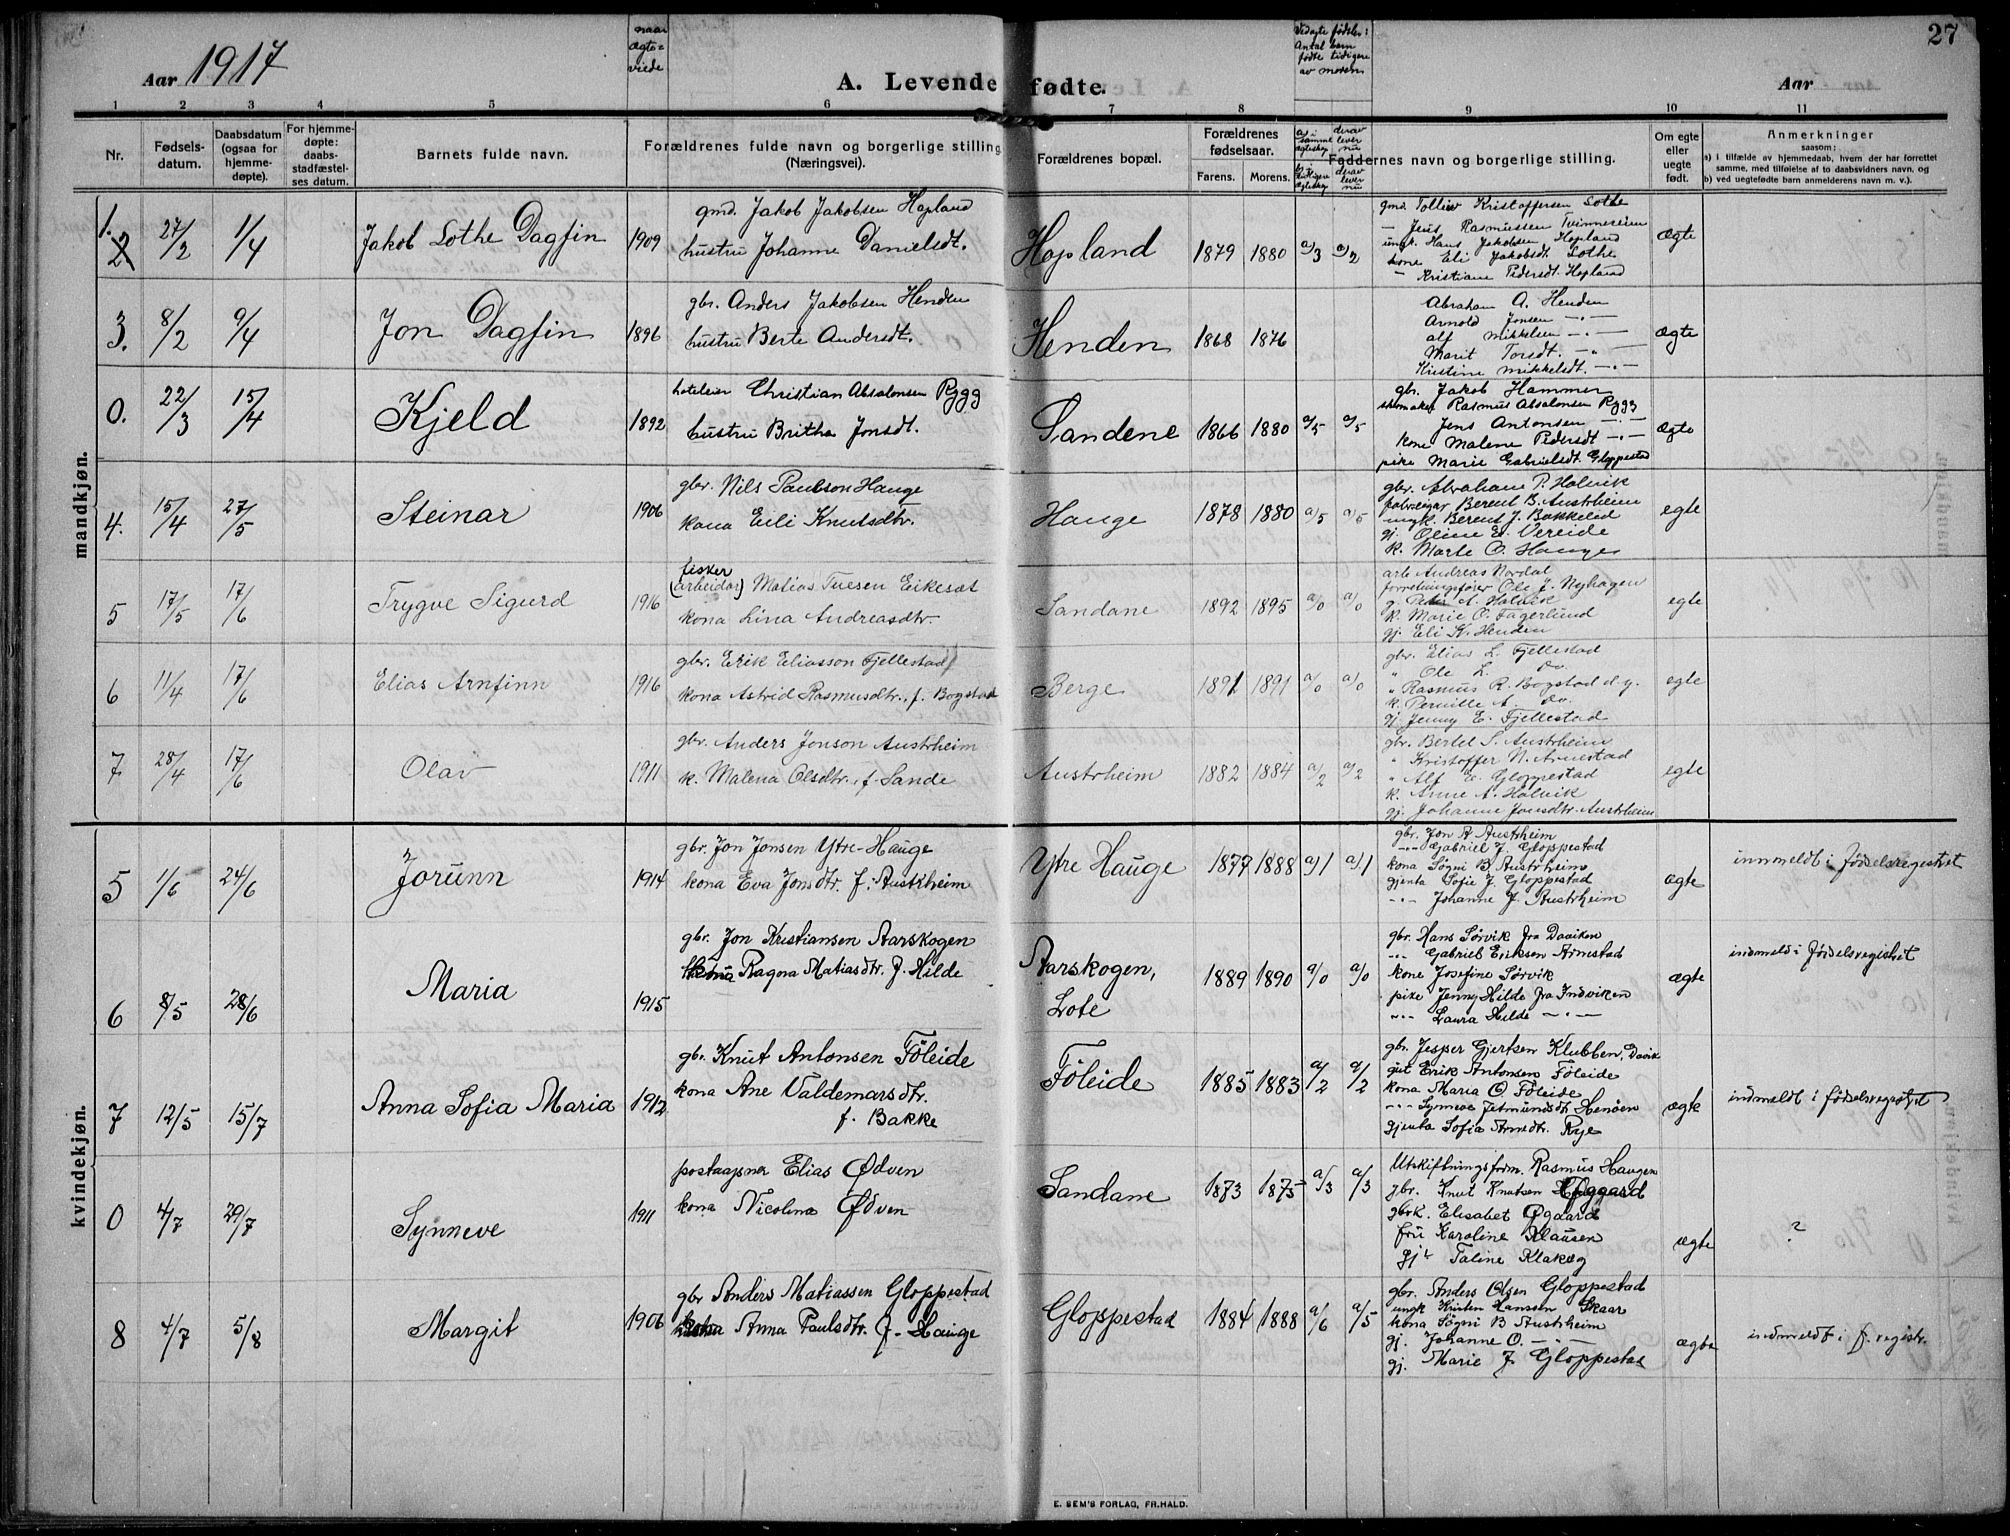 27
Aar 1917
A. Levende fødte.
Aar
naar ægteviede
Vedægte fødsler: Antal barn fødte tidligere av moren
1 2 3 4 5 6 7 8 9 10 11
Nr.
Fødselsdatum.
Daabsdatum (ogsaa for hjemmedøpte).
For hjemmedøpte: daabsstadfæstelses datum.
Barnets fulde navn.
Forældrenes fulde navn og borgerlige stilling (Næringsvei).
Forældrenes bopæl.
Forældrenes fødselsaar.
Farens. Morens.
a) i samme ægteskap
derav lever nu
b) i tidligere ægteskap
derav lever nu
Faddernes navn og borgerlige stilling.
Om egte eller uegte født.
Anmerkninger
saasom:
a) i tilfælde av hjemmedaab, hvem der har forrettet samme, med tilføielse af to daabsvidners navn, og
b) ved uegtefødte barn anmelderens navn m. v.).
mandkjøn.
1. 2 27/2 1/4 Jakob Lothe Dagfin 1909
gmd. Jakob Jakobsen Hopland
hustru Johanne Danielsdt.
Hopland 1879 1880 a/3 a/2
gmd. Tolliev Kristoffersen Lothe
– Jens Rasmussen Tvinnereim
ungk. Hans Jakobsen Hopland
kone Eli Jakobsdt. Lothe
– Kristiane Pedersdt. Hopland
ægte
3. 8/2 9/4 Jon Dagfin 1896
gbr. Anders Jakobsen Henden
hustru Berte Andersdt.
Henden 1868 1876
Abraham A. Henden
Arnold Jonsen –"–
Alf Mikkelsen –"–
Marit Torsdt. –"–
Kristine Mikkelsdt. –"–
ægte
0. 22/3 15/4 Kjeld 1892
hoteleier Christian Absalonsen Rygg
hustru Britha Jonsdt.
Sandene 1866 1880 a/5 a/5
gbr. Jakob Hammer
skomaker Rasmus Absalonsen Rygg
Jens Antonsen –"–
kone Malene Pedersdt –"–
pike Marie Gabrielsdt. Gloppestad
ægte
4. 15/4 27/5 Steinar 1906
gbr. Nils Paulson Hauge
kona Eili Knutsdtr.
Hauge 1878 1880 a/5 a/5
gbr. Abraham P. Holvik
fabrikeigar Berent B. Austrheim
ungk. Berent J. Bakkelid
gj. Oline E. Vereide
k. Marte O. Hauge
egte
5 17/5 17/6 Trygve Sigurd 1916
fisker
(arbeidar) Matias Tuesen Eikeset
kona Lina Andreasdtr.
Sandane 1892 1895 a/0 a/0
arb. Andreas Nordal
forretningsfører Ole J. Nyhagen
g. Peter A. Holvik
k. Marie O. Fagerlund
gj. Eli K. Henden
egte
6 11/4 17/6 Elias Arnfinn 1916
gbr. Erik Eliasson Fjellestad
kona Astrid Rasmusdtr. f. Bogstad
Berge 1891 1891 a/0 a/0
gbr. Elias L. Fjellestad
" Ole L. do.
" Rasmus R. Bogstad d.y.
k. Pernille A. do.
gj. Jenny E. Fjellestad
egte
7 28/4 17/6 Olav 1911
gbr. Anders Jonson Austrheim
k. Malena Olsdtr., f. Sande
Austrheim 1882 1884 a/2 a/2
gbr. Bertel S. Austrheim
" Kristoffer N. Arnestad
" Alf E. Gloppestad
k. Anne A. Holvik
gj. Johanne Jonsdtr. Austrheim
egte
kvindekjøn.
5 1/6 24/6 Jorunn 1914
gbr. Jon Jonsen Ytre-Hauge
kona Eva Jonsdtr. f. Austrheim
Ytre Hauge 1877 1888 a/1 a/1
gbr. Jon A Austrheim
–"– Gabriel J. Gloppestad
kona Søgni B. Austrheim
gjenta Sofie J. Gloppestad
–"– Johanne J. Austrheim
ægte
innmeldt i fødselsregistret
6 8/5 28/6 Maria 1915
gbr. Jon Kristiansen Aarskogen
Ragna Matiasdtr. f. Hilde
Aarskogen, Lote
1889 1890 a/0 a/0
gbr. Hans Sørvik fra Daviken
–"– Gabriel Eriksen Arnestad
kone Josefine Sørvik
pike Jenny Hilde fra Indviken
–"– Laura Hilde –"–
ægte
indmeld i fødselsregistret
7 12/5 15/7 Anna Sofia Maria 1912
gbr. Knut Antonsen Föleide
kona Ane Valdemarsdtr.
f. Bakke
Föleide 1885 1883 a/2 a/2
gbr. Jesper Gjertsen Klubben, Davik
gut Erik Antonsen Föleide
kona Maria O. Föleide
–"– Synneve Jetmundsdtr Henden
gjenta Sofia Arnedtr. Rye
ægte
indmeldt i fødselsregistret
0 4/7 29/7 Synneve 1911
postaapner Elias Ødven
kona Nicolina Ødven
Sandane 1873 1875 a/3 a/3
Utskiftningsform. Rasmus Haugen
gbr. Knut Knutsen Øggard
gbrk. Elisabet Øgaard
fru Karoline Klausen
gj. Taline Klakeg
ægte
?
8 4/7 5/8 Margit 1906
gbr Anders Matiassen Gloppestad
Anna Paulsdtr. f. Hauge
Gloppestad 1884 1888 a/6 a/5
gbr. Anders Olsen Gloppestad
ungk Kristen Hanssen Skaar
kona Søgni B Austrheim
gj. Johanne O. –"–
gj. Marie J. Gloppestad
ægte
indmeldt i f. registr.
E. SEM'S FORLAG, FR.HALD.